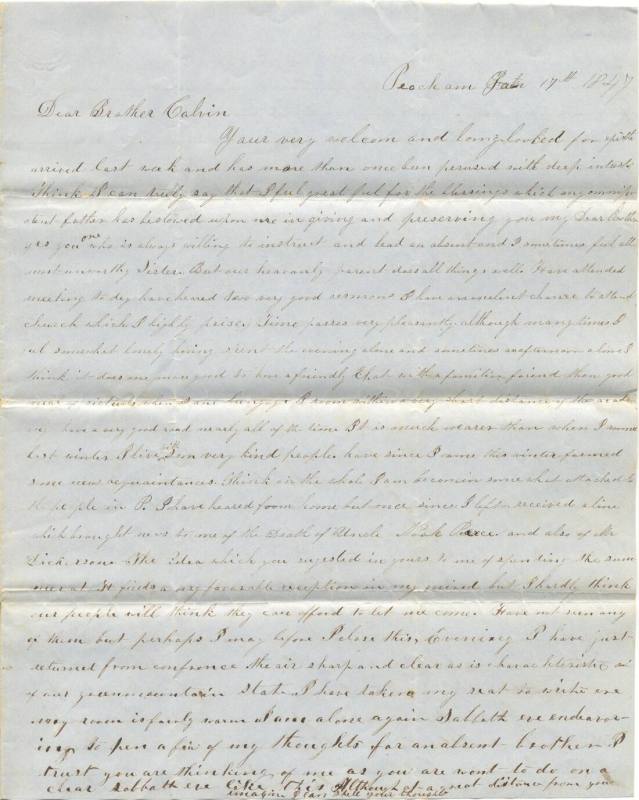 Peacham Feb 17th 1847
Dear Brother Calvin
Your very welcom and longlooked for epistle
arrived last week and has more than once been perused with deep interest
I think I can truly say that I feel great for the blessings which an omnipo
tent father has bestowed upon me in giving and preserving you my Dear brother
yes you one who is always willing to instruct and lead an absent and I sometimes feel all
most unworthy Sister. But our heavenly parent does all things well. Have attended
meeting to day have heared two very good sermons I have an exelent chance to attend
church which I highly prise. Time passes very pleasantly although many times I
feel somewhat lonely having spent the evening alone and sometimes an afternoon alone I
think it does me more good to have a friendly Chat with a familiar friend than good
meal of victuals when I am hungry I room within a very short distance of the
have a very good road nearly all of the time It is much nearer than when I roomed
last winter I live with very kind people have since I came this winter formed
some new acquaintances. Think on the whole I am becomin some what attached to
the people in P. I have heared from home but once since I left received a line
which brought news to me of the Death of Uncle Noah and also of Mr
Dickerson The Idea which you sugested in yours to me of spending the sum
mer at finds a very favorable reception in my mind but I hardly think
our people will think they can afford to let me come. Have not seen any
of them but perhaps I may before I close this, Evening I have just
returned from confrence the air sharp and clear as is charackteristic
of our greenmountain State I have taken my seat to write
my room is fairly warm I am alone again Sabbath eve endeavor-
ing to pen a few of my thoughts for an absent brother I
trust you are thinking of me as you are wont to do on a
clear sabbath eve like this Although at a great distance from you
imagine I can tell your thoughts